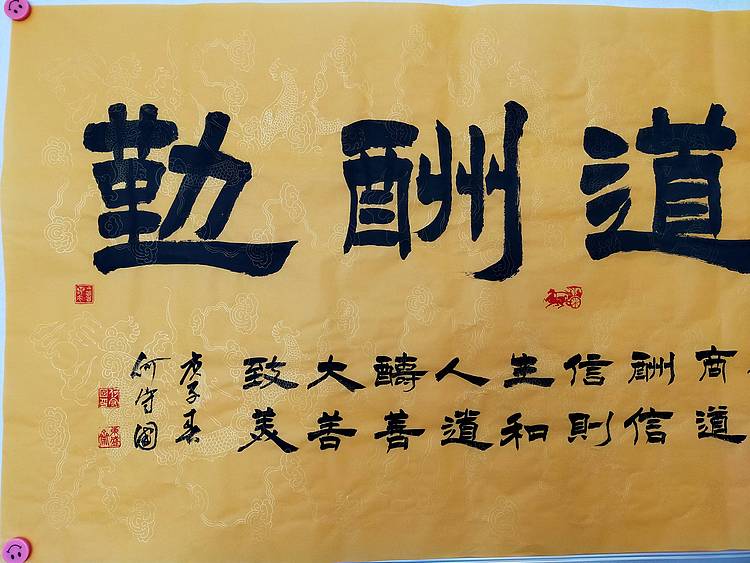 道酬勤
商道
酬信
信則
生和
人道
醻善
大善
致美
庚子春
何守國